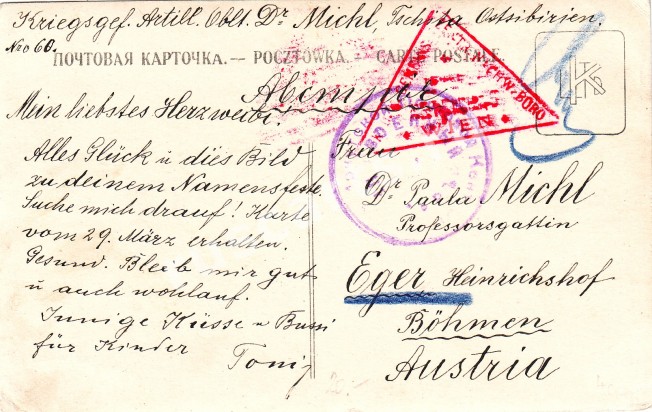 Kriegsgef. Artill. Oblt. Dr Michl, Tschita Ostsibirien
No 60.
ПОЧТОВАЯ КАРТОЧКА.— POCZTÓWKA.— CARTE POSTALE
Mein liebstes Herzweibi.
Alles Glück u dies Bild
zu deinem Namensfeste.
Suche mich drauf! Karte
vom 29. März erhalten.
Gesund. Bleib mir gut
u auch wohlauf.
Innige Küsse u Bussi
für Kinder Toni
Frau
Dr Paula Michl
Professorsgattin
Eger Heinrichshof
Böhmen
Austria
WIEN